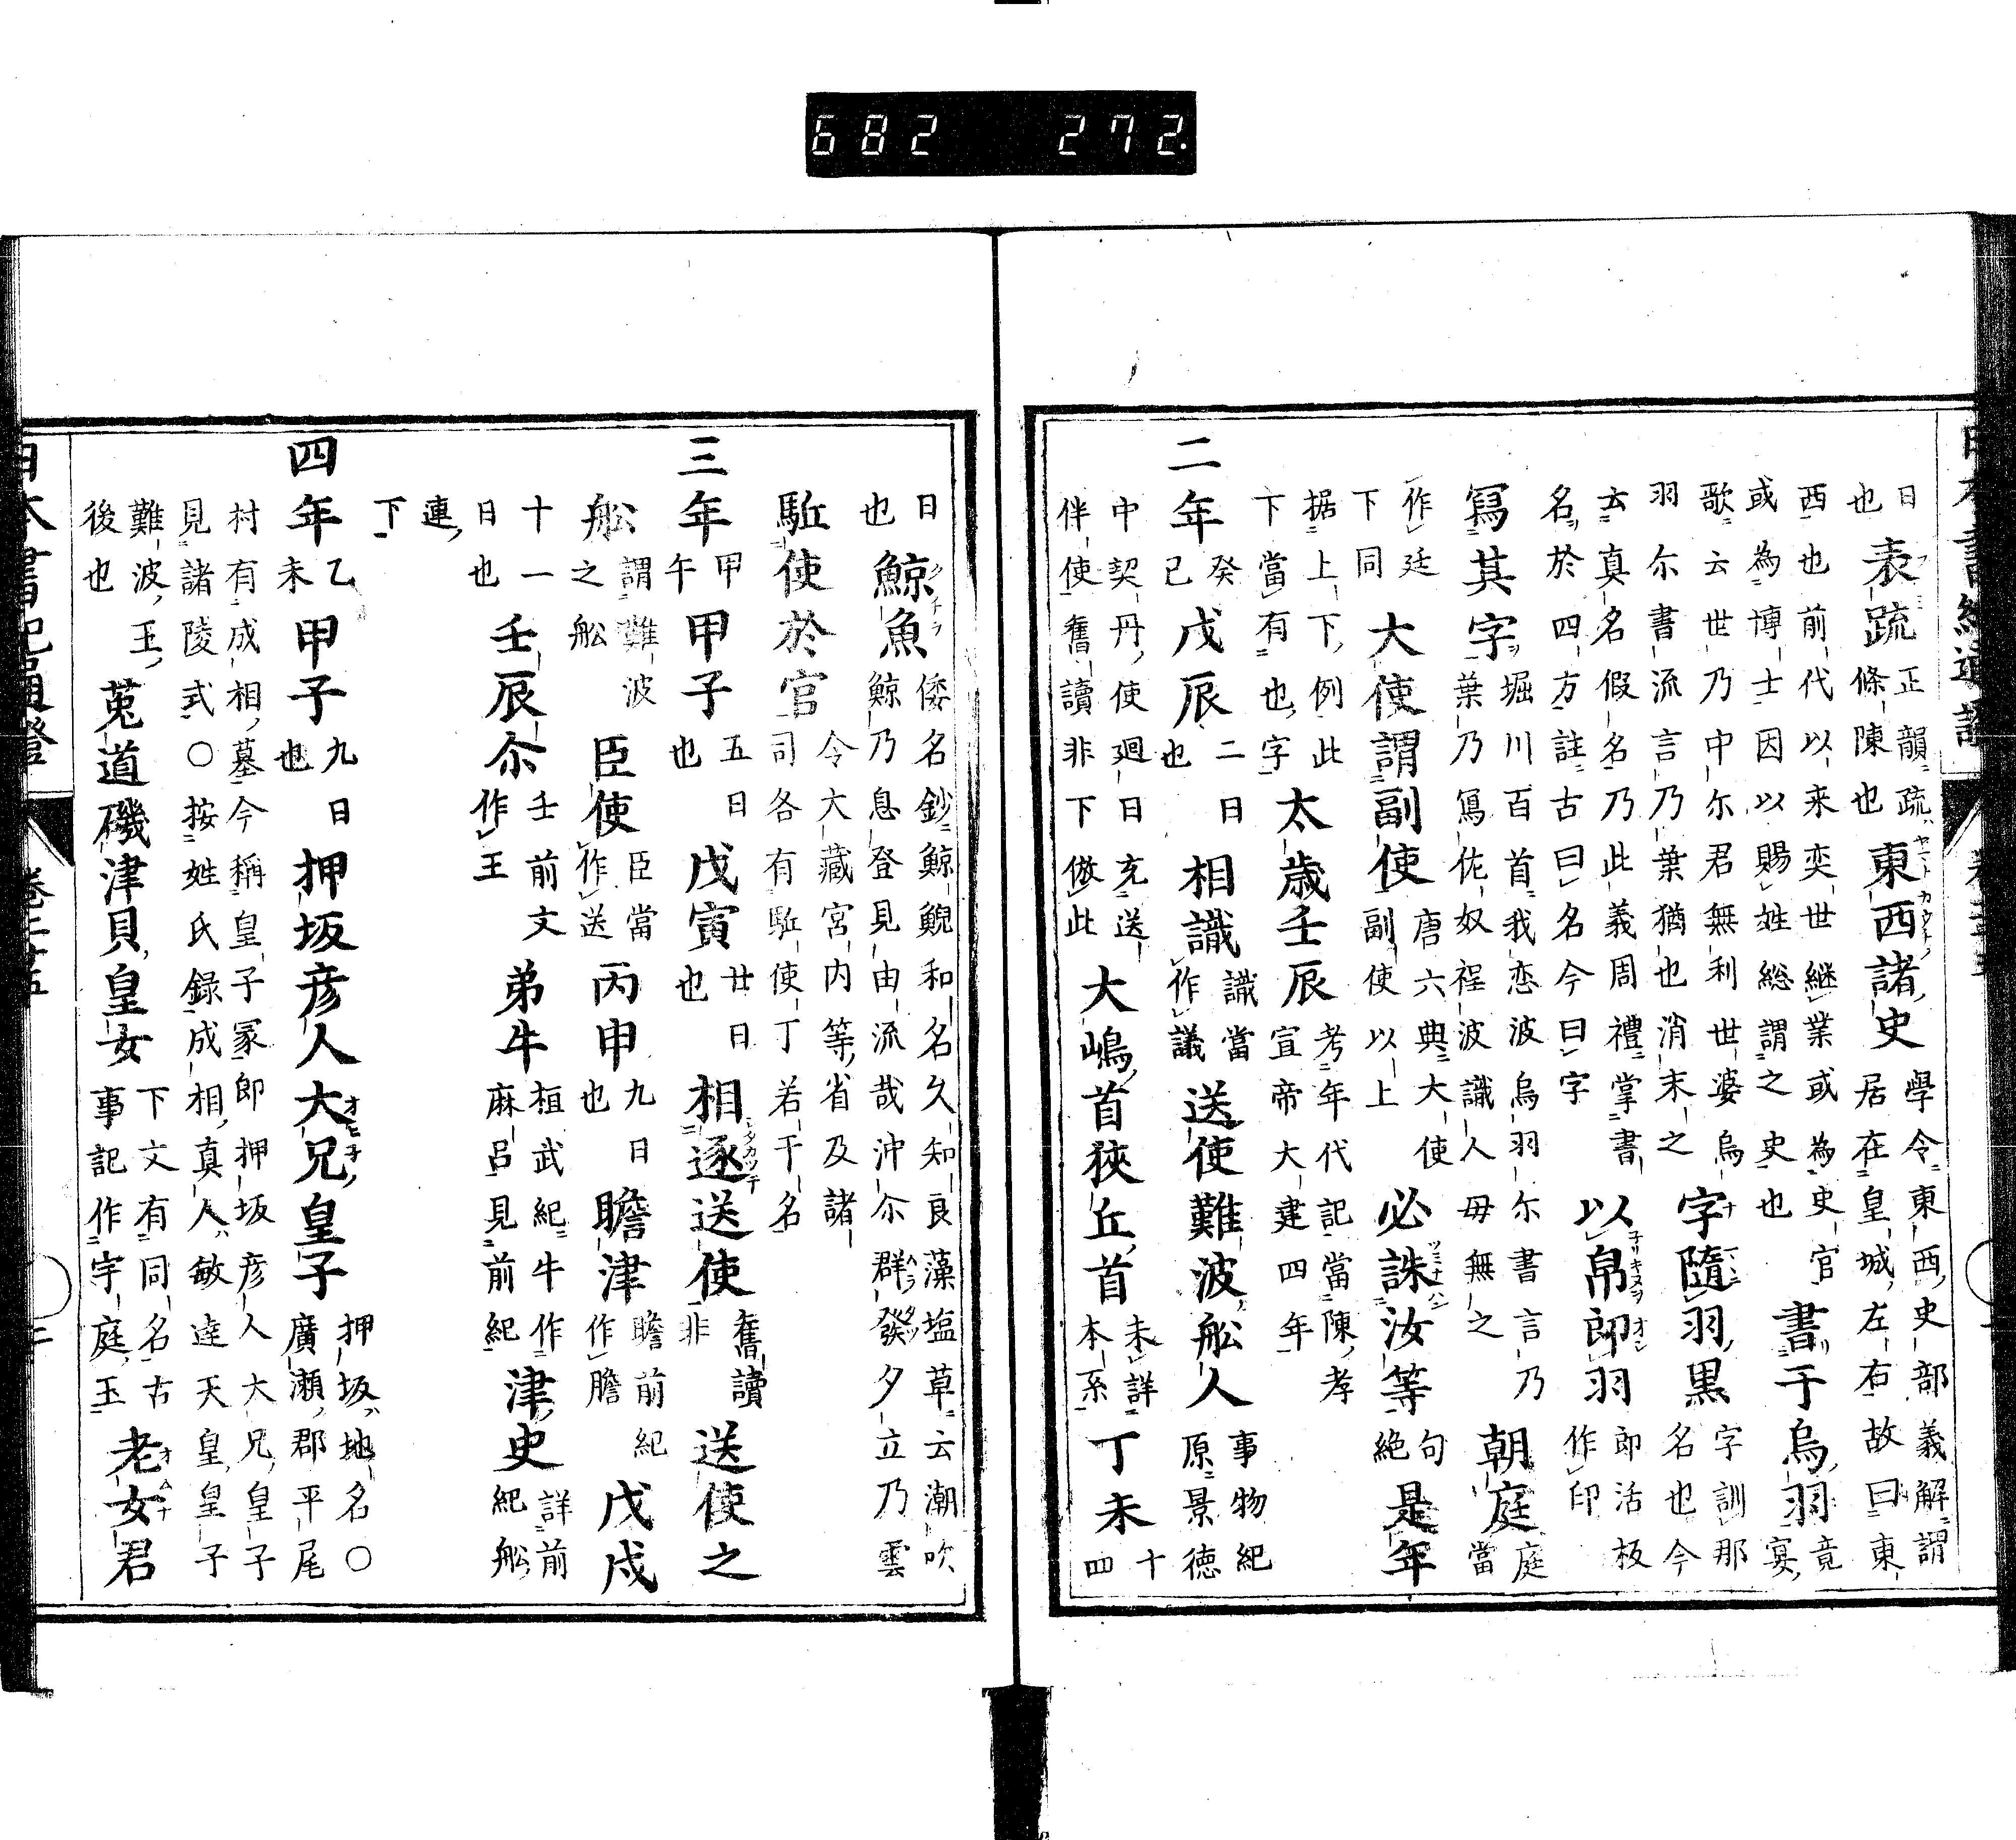 682 272
日也表䟽正韻疏條陳也東西諸史學令東西史部義解謂居在皇城左右故曰東
西也前代以来奕世継業或為史官或為博士因以賜姓総謂之史也書于烏羽竟宴
歌云世乃中尓君無利世婆烏羽尓書流言乃葉猶也消末之字隨羽黒字訓那名也今
云真名假名乃此義周禮掌書名於四方註古曰名今曰字以帛印羽即活板作印
寫其字堀川百首我恋波烏羽尓書言乃葉乃寫佐奴裎波識人毋無之朝庭庭當
作廷下同大使謂副使唐六典大使副使以上必誅汝等句絶是年
据上下例此下當有也字太歳壬辰考年代記當陳孝宣帝大建四年
二年癸已戊辰二日也相識識當作議送使難波舩人事物紀原景徳
中契丹使廻日充送伴使奮讀非下倣此大嶋首狹丘首未詳本系丁未十四
日也鯨魚倭名鈔鯨鯢和名久知良藻塩草云潮吹鯨乃息登見由流哉沖尓群發夕立乃雲
駈使於官令大藏宮内等省及諸司各有駈使丁若干名
三年甲午甲子五日也戊寅廿日也相逐送使奮讀非送使之
舩謂難波之舩臣使臣當作送丙申九日也瞻津瞻前紀作膽戊戌
十一日也壬辰尒壬前文作王弟牛桓武紀牛作麻呂見前紀津史詳前紀舩
連下
四年乙未甲子九日也押坂彦人大兄皇子押坂地名〇廣瀬郡平尾
村有成相墓今稱皇子冢即押坂彦人大兄皇子見諸陵式〇按姓氏録成相真人敏達天皇皇子
難波王後也菟道磯津貝皇女下文有同名古事記作宇庭玉老女君
日本書紀通證 卷二十五 二